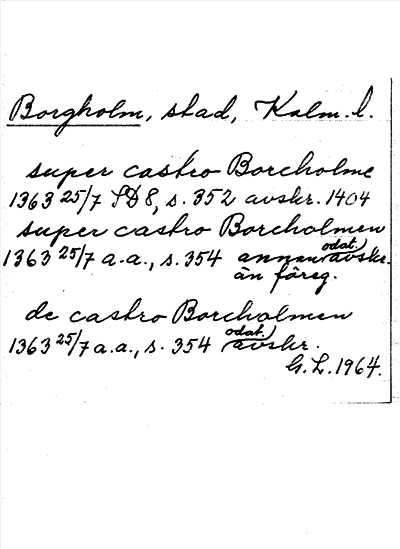 Borgholm, stad, Kalm. l.
super castro Borcholme
1363 25/7 SD 8, s. 352 avskr. 1404
super castro Borcholmen
1363 25/7 a.a., s. 354 annan odat. avskr.
än föreg.
de castro Borcholmen
1363 25/7 a.a., s. 354 odat. avskr.
G. L. 1964.